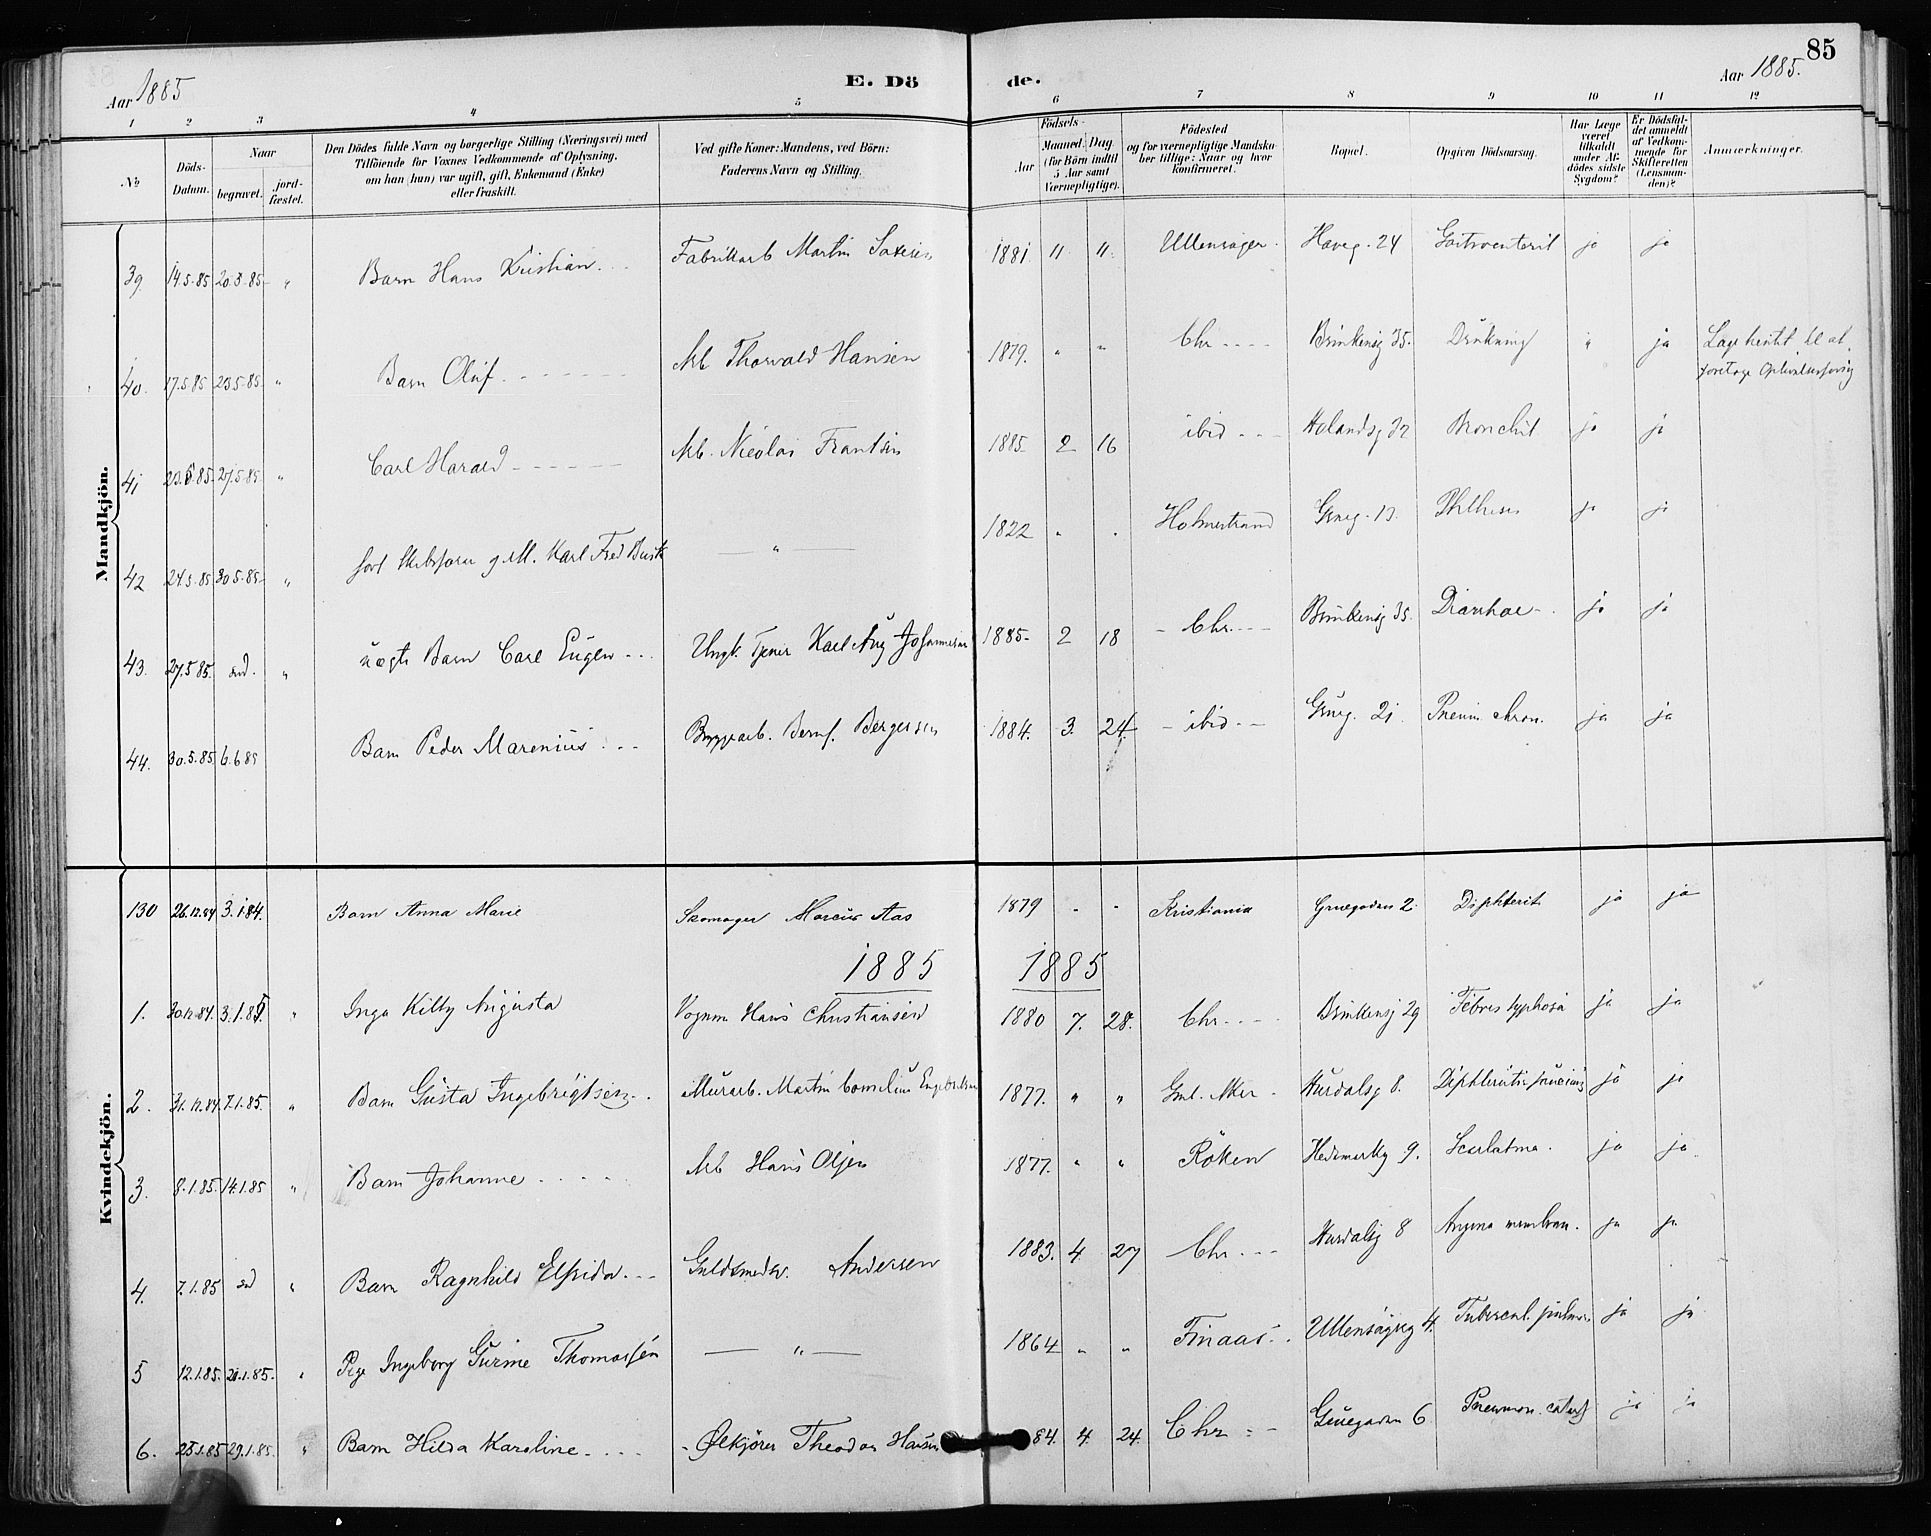 85
Aar 1885
E. Dö de.
Aar 1885.
1 2 3 4 5 6 7 8 9 10 11 12
No
Döds-Datum.
Naar
begravet.
jord-fæstet.
Den Dödes fulde Navn og borgerlige Stilling (Næringsvei) med
Tilföiende for Voxnes Vedkommende af Oplysning,
om han (hun) var ugift, gift, Enkemand (Enke)
eller fraskilt.
Ved gifte Koner: Mandens, ved Börn:
Faderens Navn og Stilling.
Födsels-
Aar
Maaned. Dag.
(for Börn indtil
5 Aar samt
Værnepligtige).
Födested
og for værnepligtige Mandsku-
ber tillige: Naar og hvor
konfirmeret.
Bopæl.
Opgiven Dödsaarsag.
Har Læge
været
tilkaldt
under Af-
dödes sidste
Sygdom?
Er Dödsfal-
det anmeldt
af Vedkom-
mende for
Skifteretten
(Lensman-
den)?
Anmærkninger.
Mandkjön.
39. 14.5.85 20.5.85 " Barn Hans Kristian. Fabrikarb Martin 1881. 11 11. Ullensager. Haveg. 24 Gastroenterit ja ja
40. 17.5.85 23.5.85 " Barn Oluf Arb Thorvald Hansen 1879. " " Chr Brinkensg 35. Drukning " ja Læge hentet til at
foretage Oplivelsesforsøg
41 20.5.85 27.5.85 " Carl Harald Arb. Nicolai Frantsen 1885 2 16 ibid Holandsg 32 Bronchit ja ja
42 24.5.85 30.5.85 " Karl Fred Busk — " — 1822 " . Holmestrand Grueg. Phthisis ja ja
43. 27.5.85. s.d. " uægte Barn Carl Eugen Ungk. Tjener Karl Aug Johannesen 1885 2 18 Chr Brinkensg 35. Diarrhoe ja ja
44. 30.5.85 6.6.85 Barn Peder Marenius Bryggearb. Bernh. Bergersen 1884. 3. 24. ibid Grueg. 21. Pneum. chron. ja ja
Kvindekjön.
130 26.12.84 3.1.84. Barn Anna Marie Skomager Marcus Aas 1879 - - Kristiania Gruegaden 2. Diphterit ja ja
1885 1885
1. 30.12.84. 3.1.85. " Inga Kitty Augusta Vognm Hans Christiansen 1880 7. 28. Chr Brinkensg 29 Febris typhosa ja ja
2. 31.12.84. 7.1.85. " Barn Gusta Ingebrigtsen Murarb. Martin Cornelius Engebretsen 1877. " " Gml. Aker Hurdalsg 8. Diphteritis faucium ja ja
3. 8.1.85. 14.1.85 " Barn Johanne Arb Hans Olsen 1877. " " Röken Hedemarksg 9. Scarlatina. ja ja.
4. 7.1.85 s.d " Barn Ragnhild Elfrida Guldsmedsv. Andersen 1883. 4. 27 Chr Hurdalsg 8 Angina membran. ja ja
5 12.1.85. 20.1.85. " Pige Ingeborg Gurine Thomassen — " — 1864 " " Finaas Ullensagerg 4. Tubercul. pulmon ja ja
6. 25.1.85 29.1.85. " Barn Hilda Karoline Ølkjører Theodor Hansen 84. 4. 24. Chr Gruegaden 6 Pneumon. catarrh ja ja